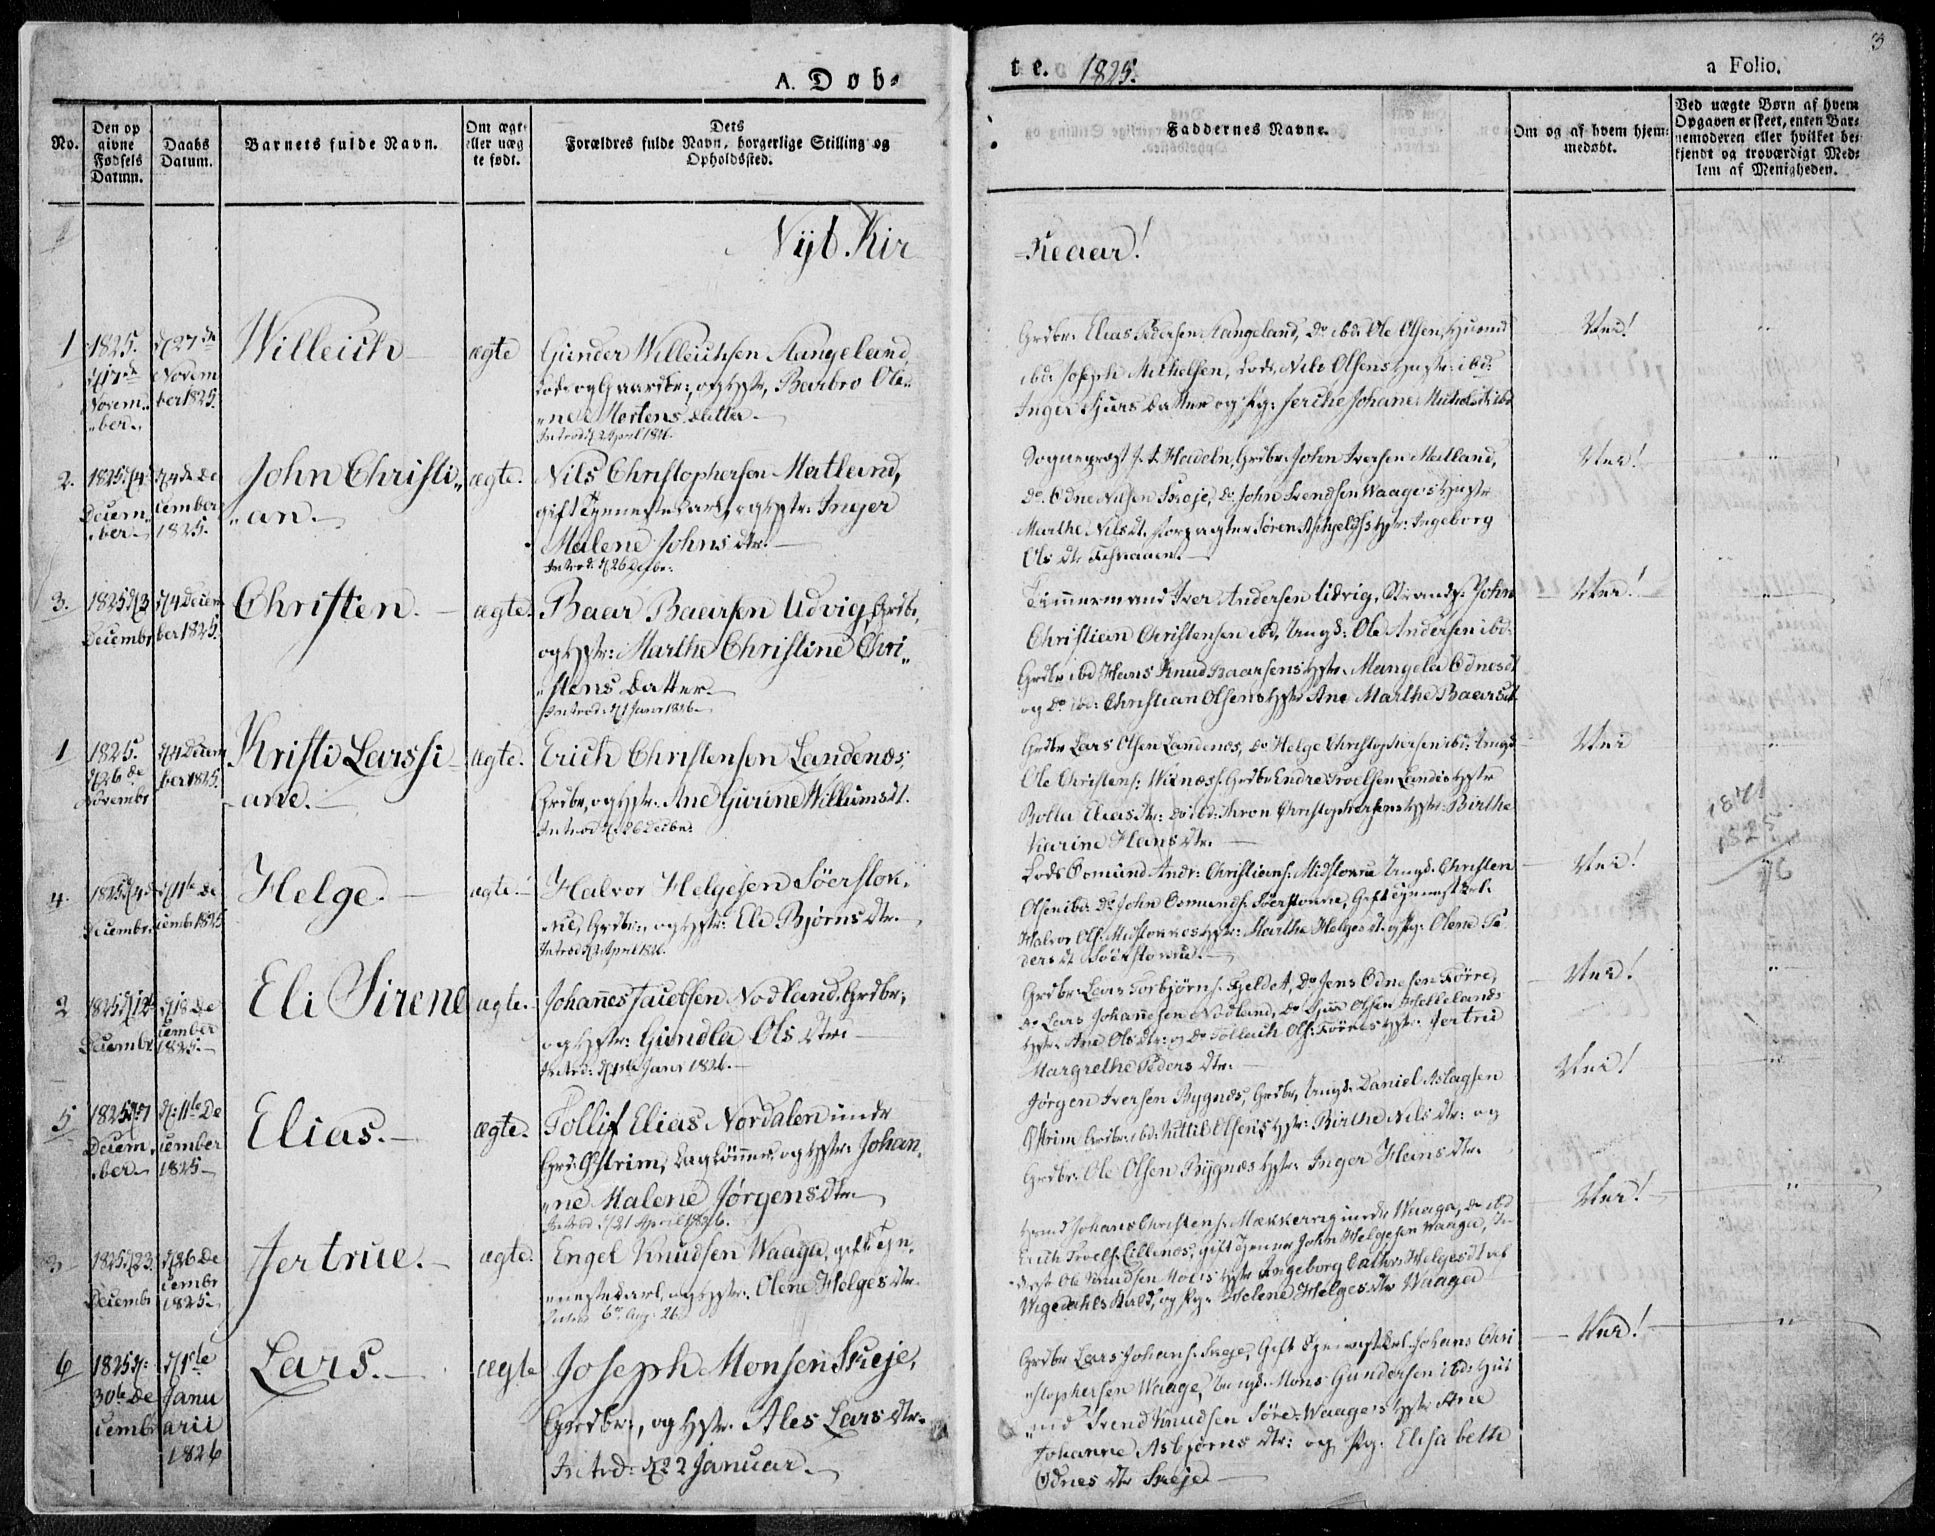 A. Døb-
te. 1825.
a Folio.
3
No.
Den op
givne
Fødsels
Datum.
Daabs
Datum.
Barnets fulde Navn.
Om ægt-
eller uæg
te født.
Dets
Forældres fulde Navn, borgerlige Stilling og
Opholdssted.
Faddernes Navne.
Om og af hvem hjem-
medøbt.
Ved uægte Børn af hvem
Opgaven er skeet, enten Bar-
nemoderen eller hvilket be-
kjendt og troværdigt Med-
lem af Menigheden.
Nyt Kir
keaar!
1
1825.
d 17de
Novem-
ber.
d 27de
Novem
ber 1825.
Willeich
ægte
Gunder Willeichsen Stangeland,
Lods og Gaardbr:, og Hstr. Barbro Ole-
ne Mortens datter.
Introd. d 2 April 1826.
Grdbr. Elias Pedersen Stangeland, Do ibd: Ole Olsen, Huusmd
ibd: Joseph Michelsen, Lods Nils Olsens Hustr: ibd:
Inger Sjurs datter og Pg: Serche Johane Michelsdt: ibd
2.
1825 d 4
Decem-
ber
d 4de De
cember
1825.
John Christi-
an.
ægte.
Nils Christophersen Matland,
gift Tjenestekarl, og Hstr: Inger
Malene Johns dtr.
Introd: d 26 Decbr.
Sognepræst J. A. Hadeln, Grdbr. John Iversen Matland,
Do. Odne Nilsen Skeje, Do. John Svendsen Waages Hustr
Marthe Nilsdt. Forpagter Søren Hstr: Ingeborg
Ols dtr.
3.
1825 d 3
Decembr
d 4 Decem
ber 1825.
Christen.
ægte.
Baar Baarsen Udvig, Grdbr,
og Hstr: Marthe Christine Chri-
stens datter.
Introd: d 1 Janr 1826.
Timmermand Iver Andersen Udvig, Strands. John
Christian Christensen ibd, Ungd: Ole Andersen ibd:
Grdbr ibd Hans Knud Baarsens Hstr. Mangela Odnesdt
og Do ibd: Christian Olsens Hstr Ane Marthe Baarsdt
1
1825.
d 26de
Novembr
d 4 Decem
ber 1825.
Kristi Larssi-
ane.
ægte.
Erich Christensen Landenæs,
Grdbr, og Hstr. Ane Gurine Willumsdt.
Introd d. 26 Decbr.
Grdbr Lars Olsen Landenæs, Do Helge Christophersen ibd: Ungd
Ole Christens: Wiknæs. Grdbr Endre Troelsen Hstr
Bolla Eliasdtr: Do ibd: Aron Christophersens Hstr: Birthe
Karine Hans dtr.
1841
1825
16
4.
1825 d 4
Decembr.
d 11te De
cembr 1825
Helge.
ægte.
Halvor Helgesen Söerstok-
ke, Grdbr:, og Hstr: Eli Bjørns dtr.
Introd d 2 April 1826.
Lods Osmund Andr: Christians: Midstokke Ungd. Christen
Olsen ibd: Do John Osmunds: Söerstokke, Gift Tjenestkrl.
Halvor Ols: Midstokkes Hstr: Marthe Helgesdt. og Pg: Olene Pe
ders dt Söerstokke.
2
1825 d 12
Decembr.
d 18 De
cember
1825.
Eli Sirene
ægte.
Johañes Jacobsen Nodland, Grdbr;
og Hstr: Gundla Ols dtr.
Introd: d 1ste Janr 1826.
Grdbr. Lars Torbjørns. Fjeldet, Do Jens Odnesen Förre,
Do Lars Johañesen Nodland, Do Sjur Olsen Hellelands
Hstr. Ane Ols dtr: og Do Tollach Ols: Förres Hstr: Jertrue
Margrethe Peders dtr.
5
1825 d 7
Decem-
ber
d: 11te De
cember
1825
Elias.
ægte.
Tollif Elias Nordalen under
Grd: Østrim, Daglönner og Hstr: Johan-
ne Malene Jørgens dtr.
Introd d 21 April 1826.
Jørgen Iversen Bygnæs, Grdbr, Ungd: Daniel Aslagsen
Østrim Grdbr: ibd: Kittil Olsens Hstr: Birthe Nils dtr: og
Grdbr: Ole Olsen Bygnæs Hstr: Inger Heins dtr.
3
1825 d 23
Decembr
d 26 De
cembr
1825
Jertrue.
ægte.
Engel Knudsen Waaga, gift Tje-
nestekarl, og Hstr: Olene Helges dtr.
Introd 6te Aug: 26.
Johans Christens: Mækkerrig under Waaga, Do ibd
Erich Troels: gift Tjener John Helgesen Waaga,
Ole Knudsen Hstr Ingeborg Helgesdt
og Pg: Helene Helges dtr Waaga
6
1825 d:
30te De
cembr
d 1ste
Janu
arii
1826
Lars.
ægte
Joseph Monsen Skeje,
Grdbr:, og Hstr. Ales Lars dtr.
Introd: d 22 Januar.
Grdbr Lars Johans: Skeje, Gift Tjenestkrl. Johans Chri
stophersen Waage, Ungd. Mons Gundersen ibd: Huus
md Svend Knudsen Søre-Waages Hstr Ane
Johanne Asbjørns dtr: og Pg. Elisabeth
Odnes dtr Skeje